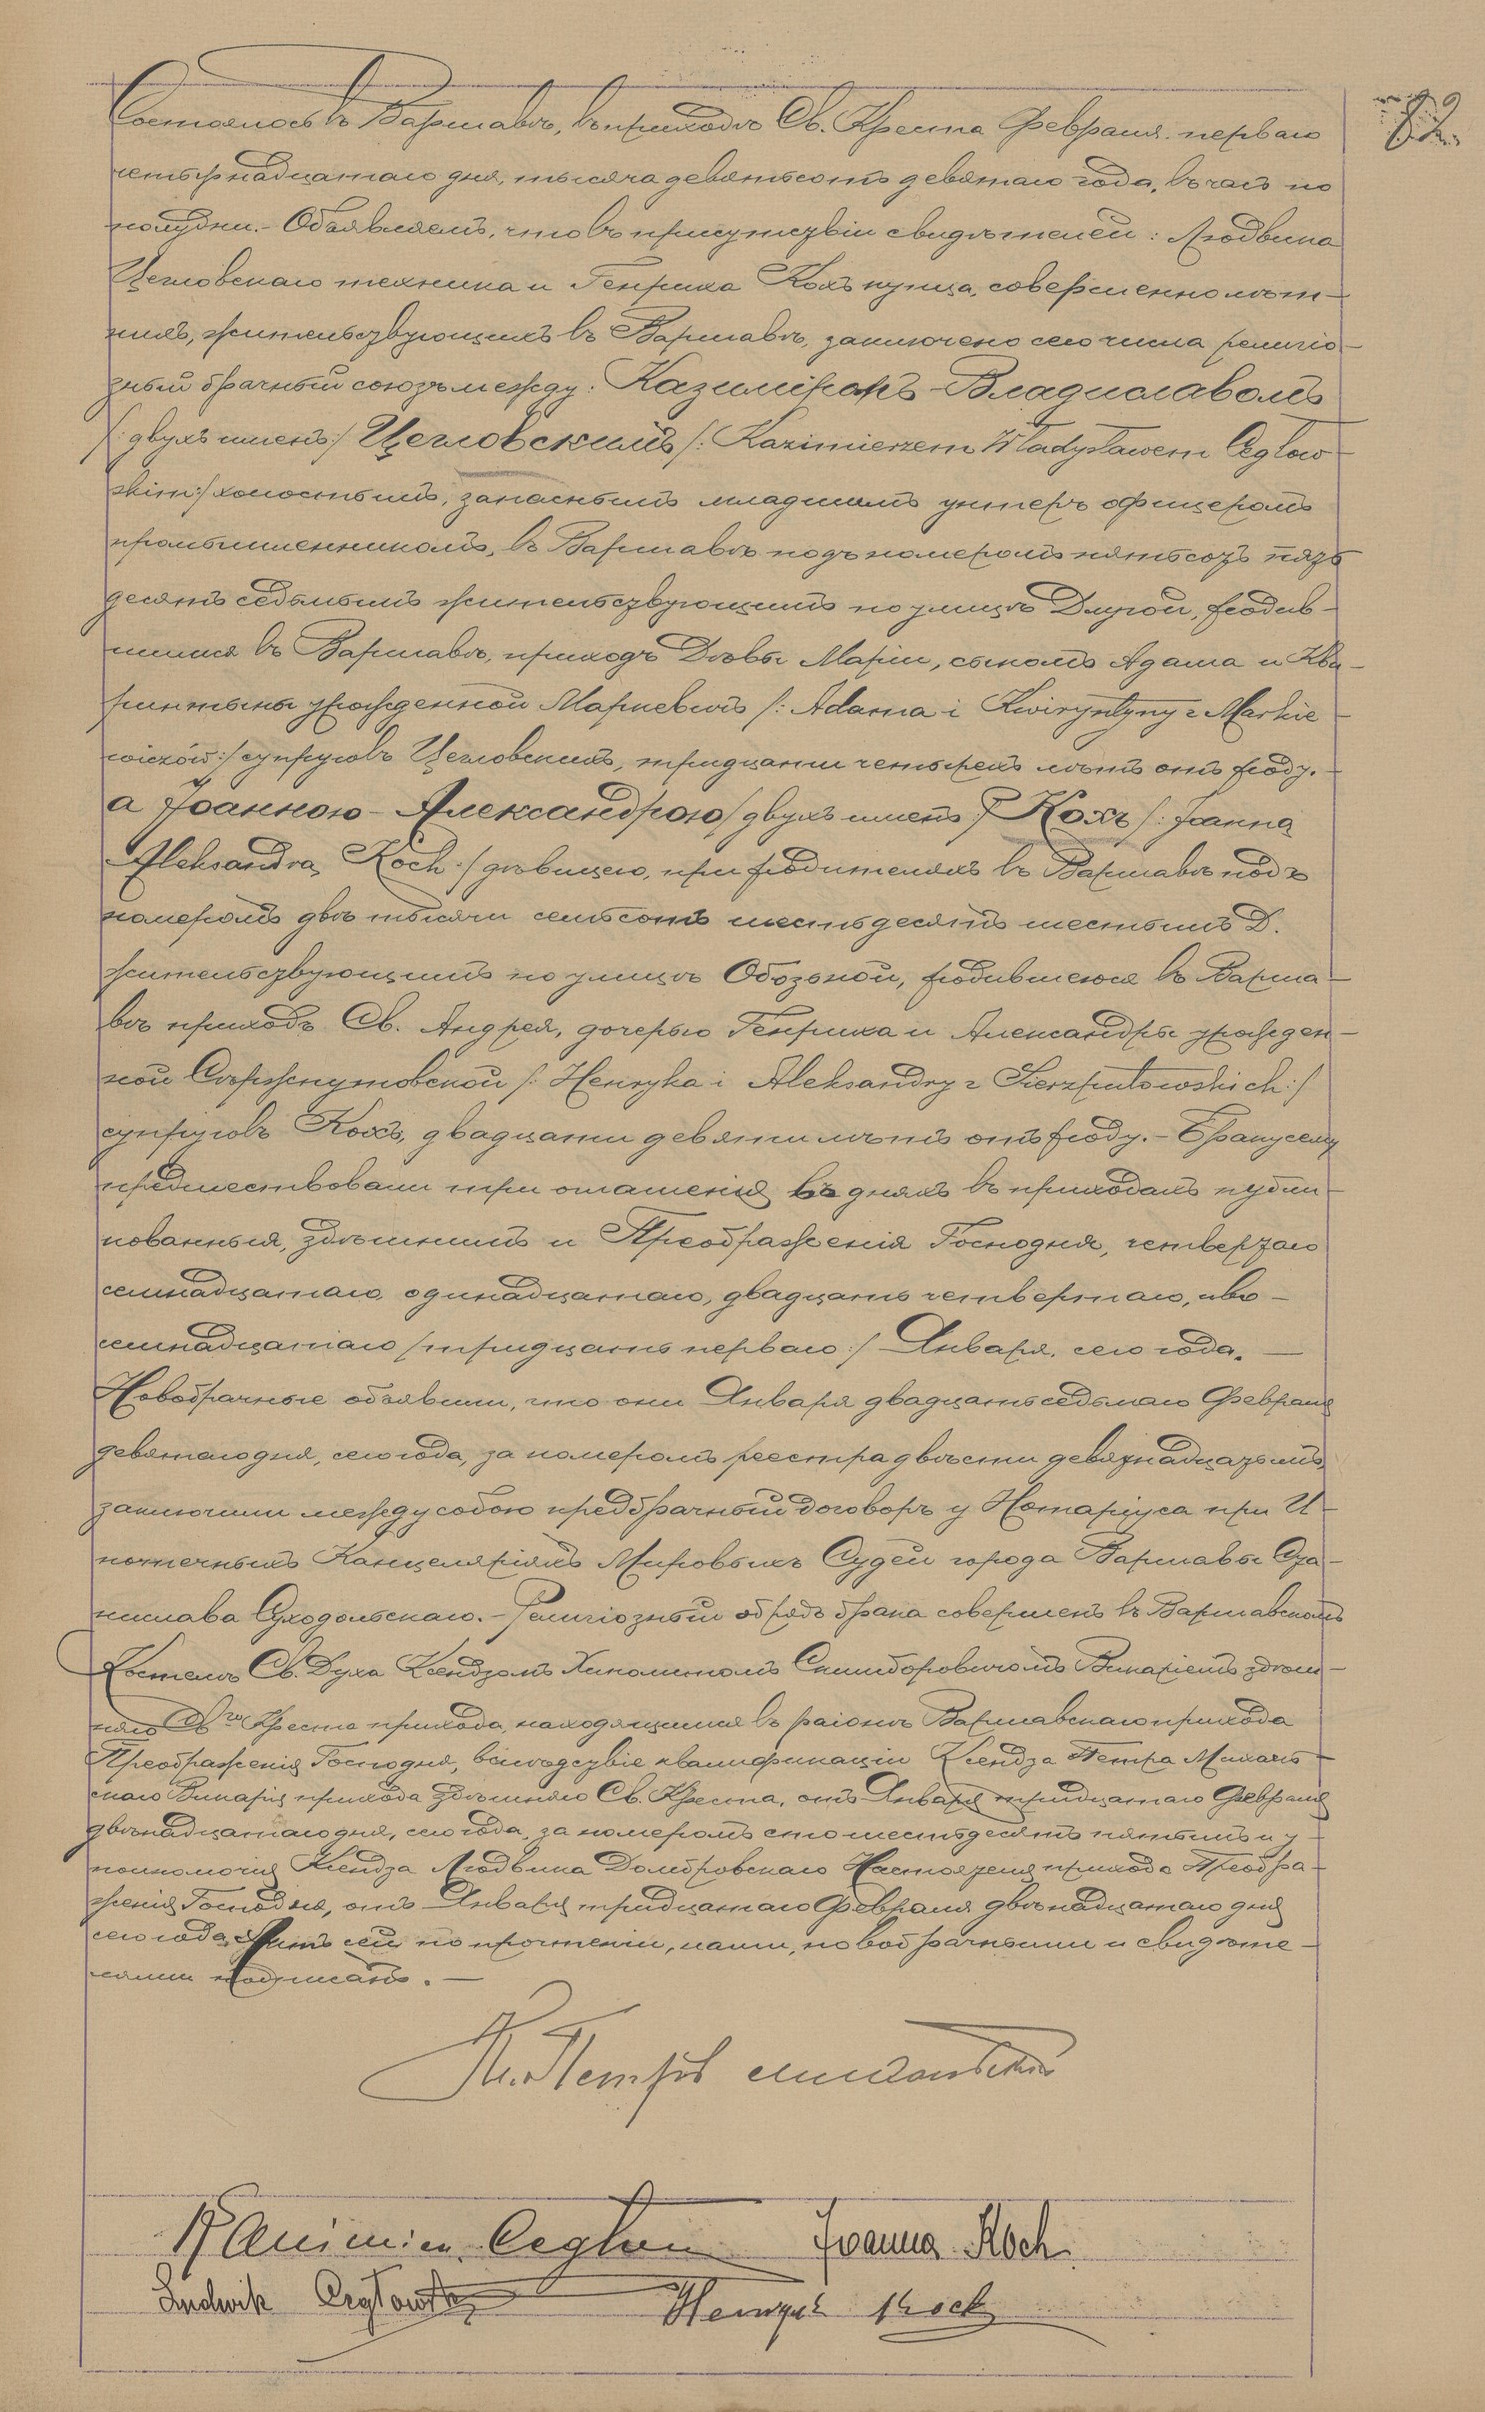 82.
Состоялось въ Варшавѣ, въ приходѣ Св. Креста Февраля перваго
четырнадцатаго дня, тысяча девятьсотъ девятаго года, въ часъ по
полудни. – Объявляемъ, что въ присутствіи свидѣтелей: Людвика
Цегловскаго техника и Генриха Кохъ купца, совершеннолѣт–
нихъ, жительствующихъ въ Варшавѣ, заключено сего числа религіо–
зный брачный союзъ между: Казиміромъ–Владиславомъ
/: двухъ именъ:/ Цегловскимъ /: Kazimierzem Władysławem Cegłow–
skim:/ холостымъ, запаснымъ младшимъ унтеръ офицеромъ
промышленникомъ, въ Варшавѣ подъ номеромъ пятьсотъ пять
десятъ седьмымъ жительствующимъ по улицѣ Длугой, родив–
шимся въ Варшавѣ, приходѣ Дѣвы Маріи, сыномъ Адама и Кви–
ринтыны урожденной Маркевичъ /: Adama i Kwiryntyny z Markie–
wiczów:/ супруговъ Цегловскихъ, тридцати четырехъ лѣтъ отъ роду. –
а Іоанною–Александрою /: двухъ именъ:/ Кохъ /: Joanna
Aleksandra Koch:/ дѣвицею, при родителяхъ въ Варшавѣ подъ
номеромъ двѣ тысячи семьсотъ шестьдесятъ шестымъ D.
жительствующимъ по улицѣ Обозьной, родившеюся въ Варша–
вѣ приходѣ Св. Андрея, дочерью Генриха и Александры урожден–
ной Сѣржпутовской /: Henryka i Aleksandry z Sierzputowskich:/
супруговъ Кохъ, двадцати девяти лѣтъ отъ роду. – Браку сему
предшествовали три оглашенія въ дняхъ въ приходахъ публи–
кованныя, здѣшнимъ и Преображенія Господня, четвертаго
семнадцатаго, одинадцатаго, двадцать четвертаго, и во–
семнадцатаго /тридцать перваго:/ Января, сего года. –
Новобрачные объявили, что они Января двадцать седьмаго Февраля
девятаго дня, сего года, за номеромъ реестра двѣсти девятнадцатымъ,
заключили между собою предбрачный договоръ у Нотаріуса при И–
потечныхъ Канцеляріяхъ Мировыхъ Судей города Варшавы Ста–
нислава Суходольскаго. – Религіозный обрядъ брака совершенъ въ Варшавскомъ
Костелѣ Св. Духа Ксендзомъ Скимборовичомъ Викаріемъ здѣш–
няго Св. Креста прихода, находящимся въ раіонѣ Варшавскаго прихода
Преображенія Господня, вслѣдствіе квалификаціи Ксендза Петра Михаль–
скаго Викарія прихода здѣшняго Св. Креста, отъ Января тридцатаго Февраля
двѣнадцатаго дня, сего года, за номеромъ сто шестьдесятъ пятымъ и у–
полномочія Ксендза Людвика Домбровскаго Настоятеля прихода Преобра–
женія Господня, отъ Января тридцатаго Февраля двѣнадцатаго дня
сего года. Актъ сей по прочтеніи, нами, новобрачными и свидѣте–
лями подписанъ. –
Кс. Петръ Михальскій
Kazimierz Cegłow Joanna Koch
Ludwik Cegłowski Henryk Koch